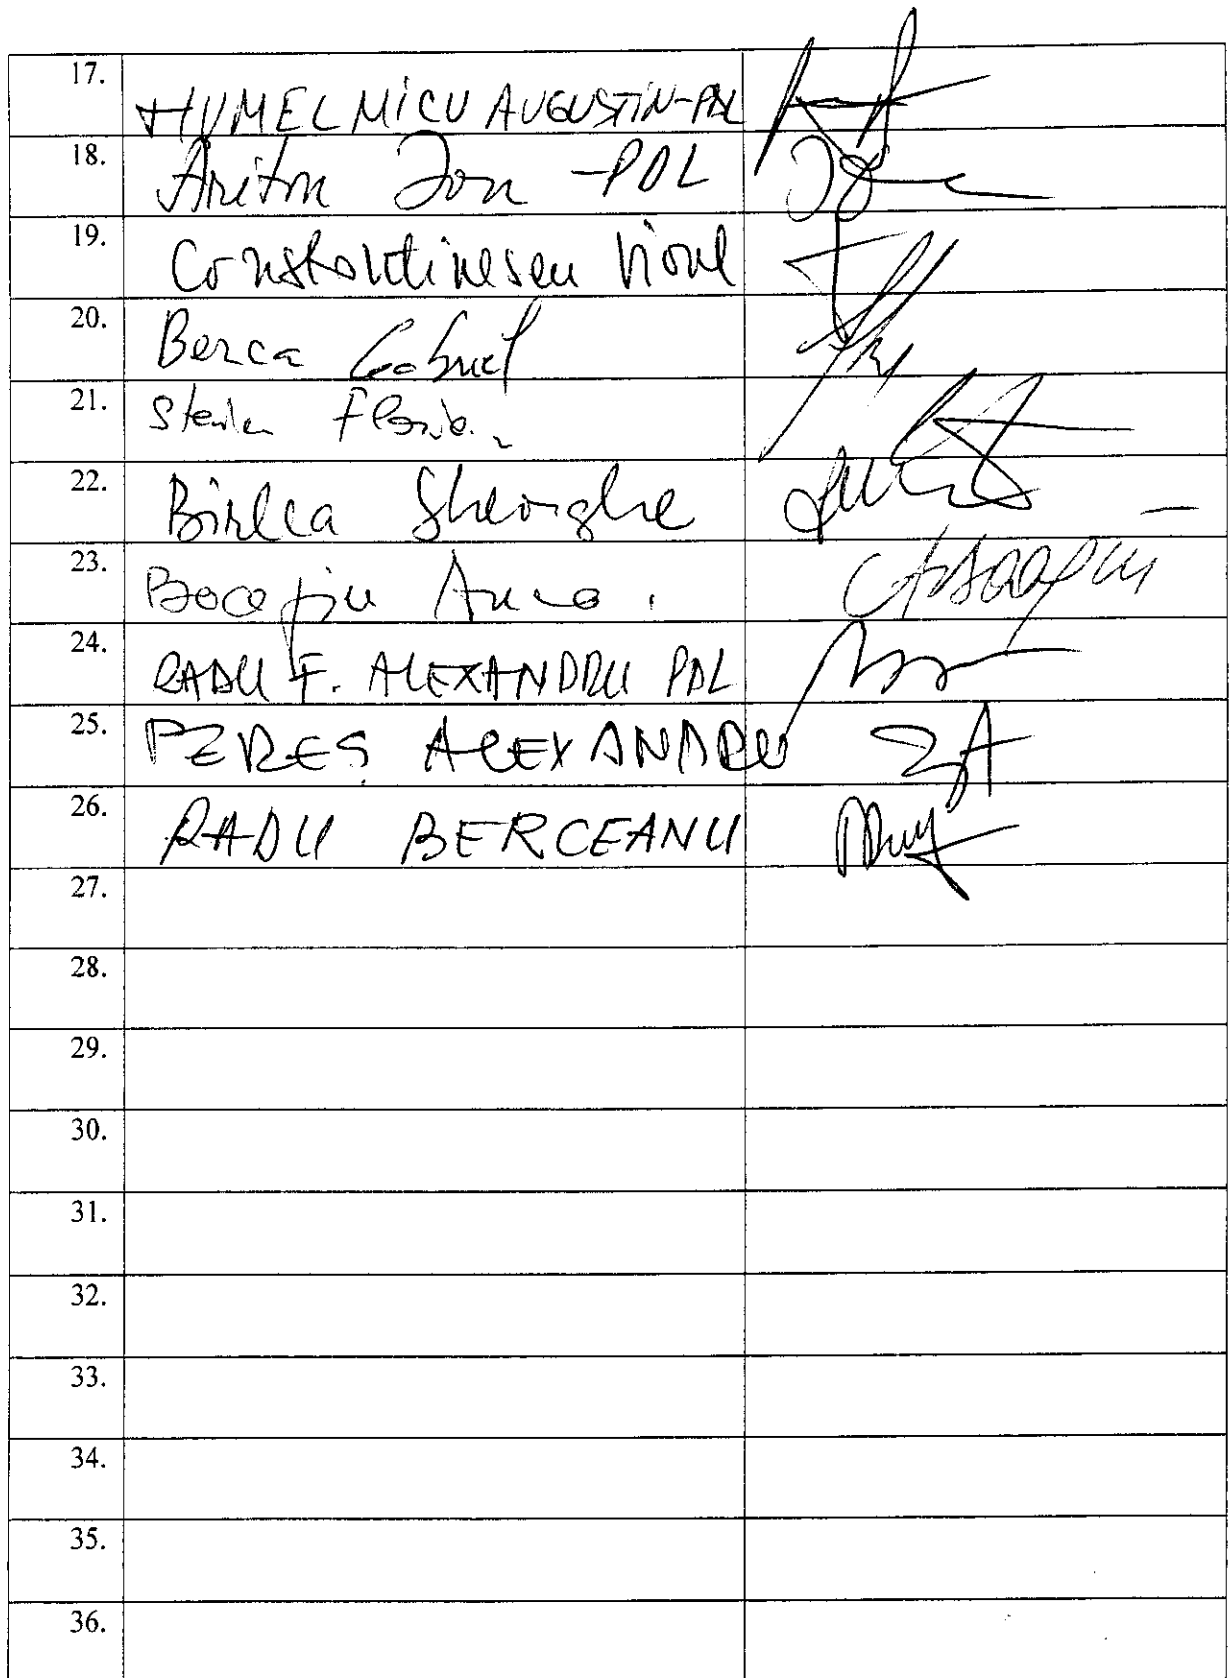 17. HUMELMICU AUGUSTIN-PDL
18. Ariton Ion -PDL
19. Constantinescu Viorel
20. Berca Gabriel
21. Florin
22. Birlea Gheorghe
23. Boagiu Anca
24. RADU F. ALEXANDRU PDL
25. PEREȘ ALEXANDRU
26. RADU BERCEANU
27.
28.
29.
30.
31.
32.
33.
34.
35.
36.